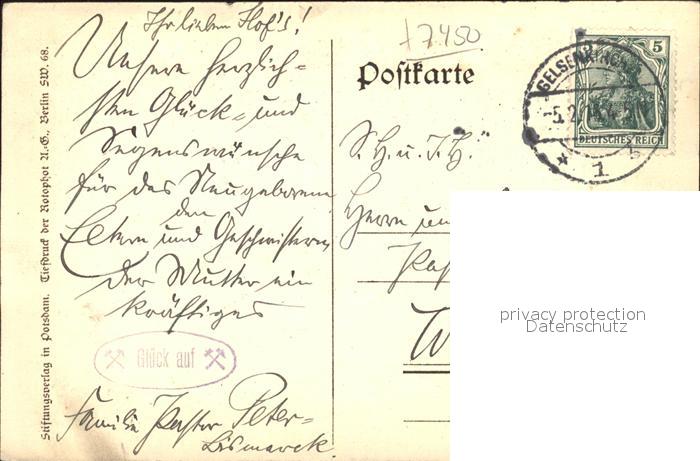 Ihr lieben Hof's!
Unsere herzlich-
sten Glück- und
Segenswünsche
für das Neugeborene
den
Eltern und Geschwistern,
der Mutter ein
kräftiges
Glück auf
Familie Pastor Peter-
Bismarck
Stiftungsverlag in Potsdam. Tiefdruck der Rotophot A.-G., Berlin SW. 68.
+7450
Postkarte
GELSENKIRCH
-5.2
* 1 b
5
DEUTSCHES REICH
S. H. u. I. H.
Herrn un
Pas
W
privacy protection
Datenschutz